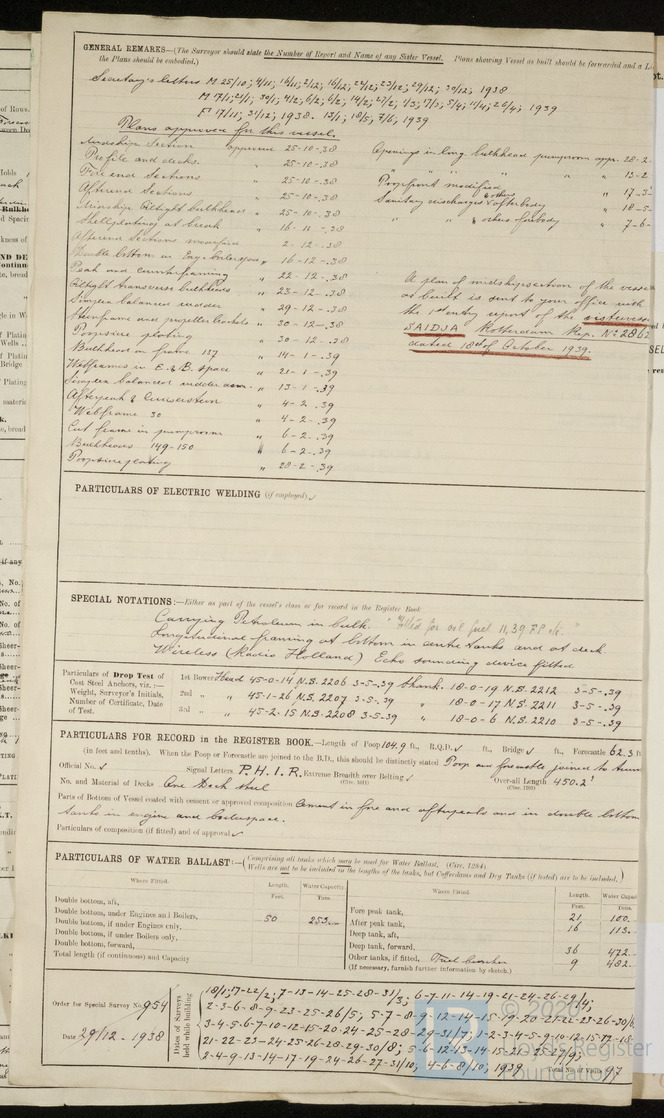 GENERAL REMARKS—(The Surveyor should state the Number of Report and Name of any Sister Vessel. Plans showing Vessel as built should be forwarded and a
the Plans should be embodied.)
Secretary's letters M 25/10; 4/11; 16/11; 2/12; 16/12; 22/12; 23/12; 29/12; 30/12, 1938
M 17/1; 21/1; 30/1; 4/2; 6/2; 8/2; 14/2; 21/2; 1/3; 17/3; 5/4; 11/4; 26/4; 1939
F 17/11; 31/12; 1938. 13/1; 18/5; 7/6; 1939
Plans approved for this vessel.
Midship Section approved 25-10-38
Profile and decks. " 25-10-38
Fore end Sections " 25-10-38
Afterend Sections " 25-10-38
Midship Oiltight bulkheads " 25-10-38
Shellplating at break " 16-11-38
Afterend Sections modified 2-12-38
Double bottom in Eng. boilerspace " 16-12-38
Peak and counterframing " 22-12-38
Oiltight transverse bulkheads " 23-12-38
Simplex balanced rudder " 29-12-38
Sternframe and propeller brackets " 30-12-38
Poopside plating " 30-12-38
Bulkhead on frame 137 " 14-1-39
Webframes in E. & B. space " 21-1-39
Simplex balanced rudder " 13-1-39
Afterpeak & " 4-2-39
Webframe 30 " 4-2-39
Cut frame in pumproom " 6-2-39
Bulkheads 149-150 " 6-2-39
Poopside plating " 28-2-39
Openings in long. bulkhead pumproom appr. 28-2-
" " " " " 13-2-
Poopfront modified " 17-3-
Sanitary discharges & others afterbody " 18-5-
" " & others forebody " 7-6-
A plan of midshipsection of the vessel
as built is sent to your office with
the 1st entry report of the sistervessel
SAIDJA Rotterdam Rep. No 2862
dated 18th of October 1939.
PARTICULARS OF ELECTRIC WELDING (if employed)
SPECIAL NOTATIONS:—Either as part of the vessel's class or for record in the Register Book
Carrying Petroleum in bulk. "Fitted for oil fuel 11,39 F.P. etc."
Longitudinal framing at bottom in centre tanks and at deck
Wireless (Radio Holland) Echo sounding device fitted
Particulars of Drop Test of
Cast Steel Anchors, viz.:—
Weight, Surveyor's Initials,
Number of Certificate, Date
of Test.
1st Bower Head 45-0-14 N.B. 2206 3-5-39 Shank. 18-0-19 N.B. 2212 3-5-39
2nd " " 45-1-26 N.B. 2207 3-5-39 " 18-0-17 N.B. 2211 3-5-39
3rd " " 45-2-15 N.B. 2208 3-5-39 " 18-0-6 N.B. 2210 3-5-39
PARTICULARS FOR RECORD in the REGISTER BOOK.—Length of Poop 104.9 ft., R.Q.D. ft., Bridge ft., Forecastle 62.5 ft
(in feet and tenths). When the Poop or Forecastle are joined to the B.D., this should be distinctly stated Poop and forecastle joined to
Official No. Signal Letters P.H.I.R. Extreme Breadth over Belting Over-all Length 450.2'
No. and Material of Decks One Deck steel
Parts of Bottom of Vessel coated with cement or approved composition Cement in fore and afterpeaks and in double bottom
tanks in engine and boilerspace.
Particulars of composition (if fitted) and of approval
PARTICULARS OF WATER BALLAST:—(Comprising all tanks which may be used for Water Ballast. (Circ. 1284)
Wells are not to be included in the lengths of the tanks, but Cofferdams and Dry Tanks (if fitted) are to be included.)
Where Fitted. Length. Water Capacity Where Fitted. Length.
Feet. Tons. Feet. Tons.
Double bottom, aft,
Double bottom, under Engines and Boilers, 50 253
Double bottom, if under Engines only,
Double bottom, if under Boilers only,
Double bottom, forward,
Total length (if continuous) and Capacity
Fore peak tank, 21 100.
After peak tank, 16 113.
Deep tank, aft,
Deep tank, forward, 36 472.
Other tanks, if fitted, Fuel bunker 9 482.
(If necessary, furnish further information by sketch.)
Order for Special Survey No. 954
Date 29/12-1938
Dates of Surveys held while building
18/1; 17-22/2; 7-13-14-25-28-31/3; 6-7-11-14-19-21-24-26-29/4;
2-3-6-8-9-23-25-26/5; 5-7-8-9-12-14-15-19-20-21-22-23-26-30/6
3-4-5-6-7-10-12-15-20-24-25-28-29-31/7; 1-2-3-4-5-9-10-12-15-17-18
21-22-23-24-25-26-28-29-30/8; 5-6-12-13-14-15-21-25-27/9;
2-4-9-13-14-17-19-24-26-27-31/10; 4-6-8/10; 1939
Total No. of Visits 97
© 2020
Lloyd's Register
Foundation